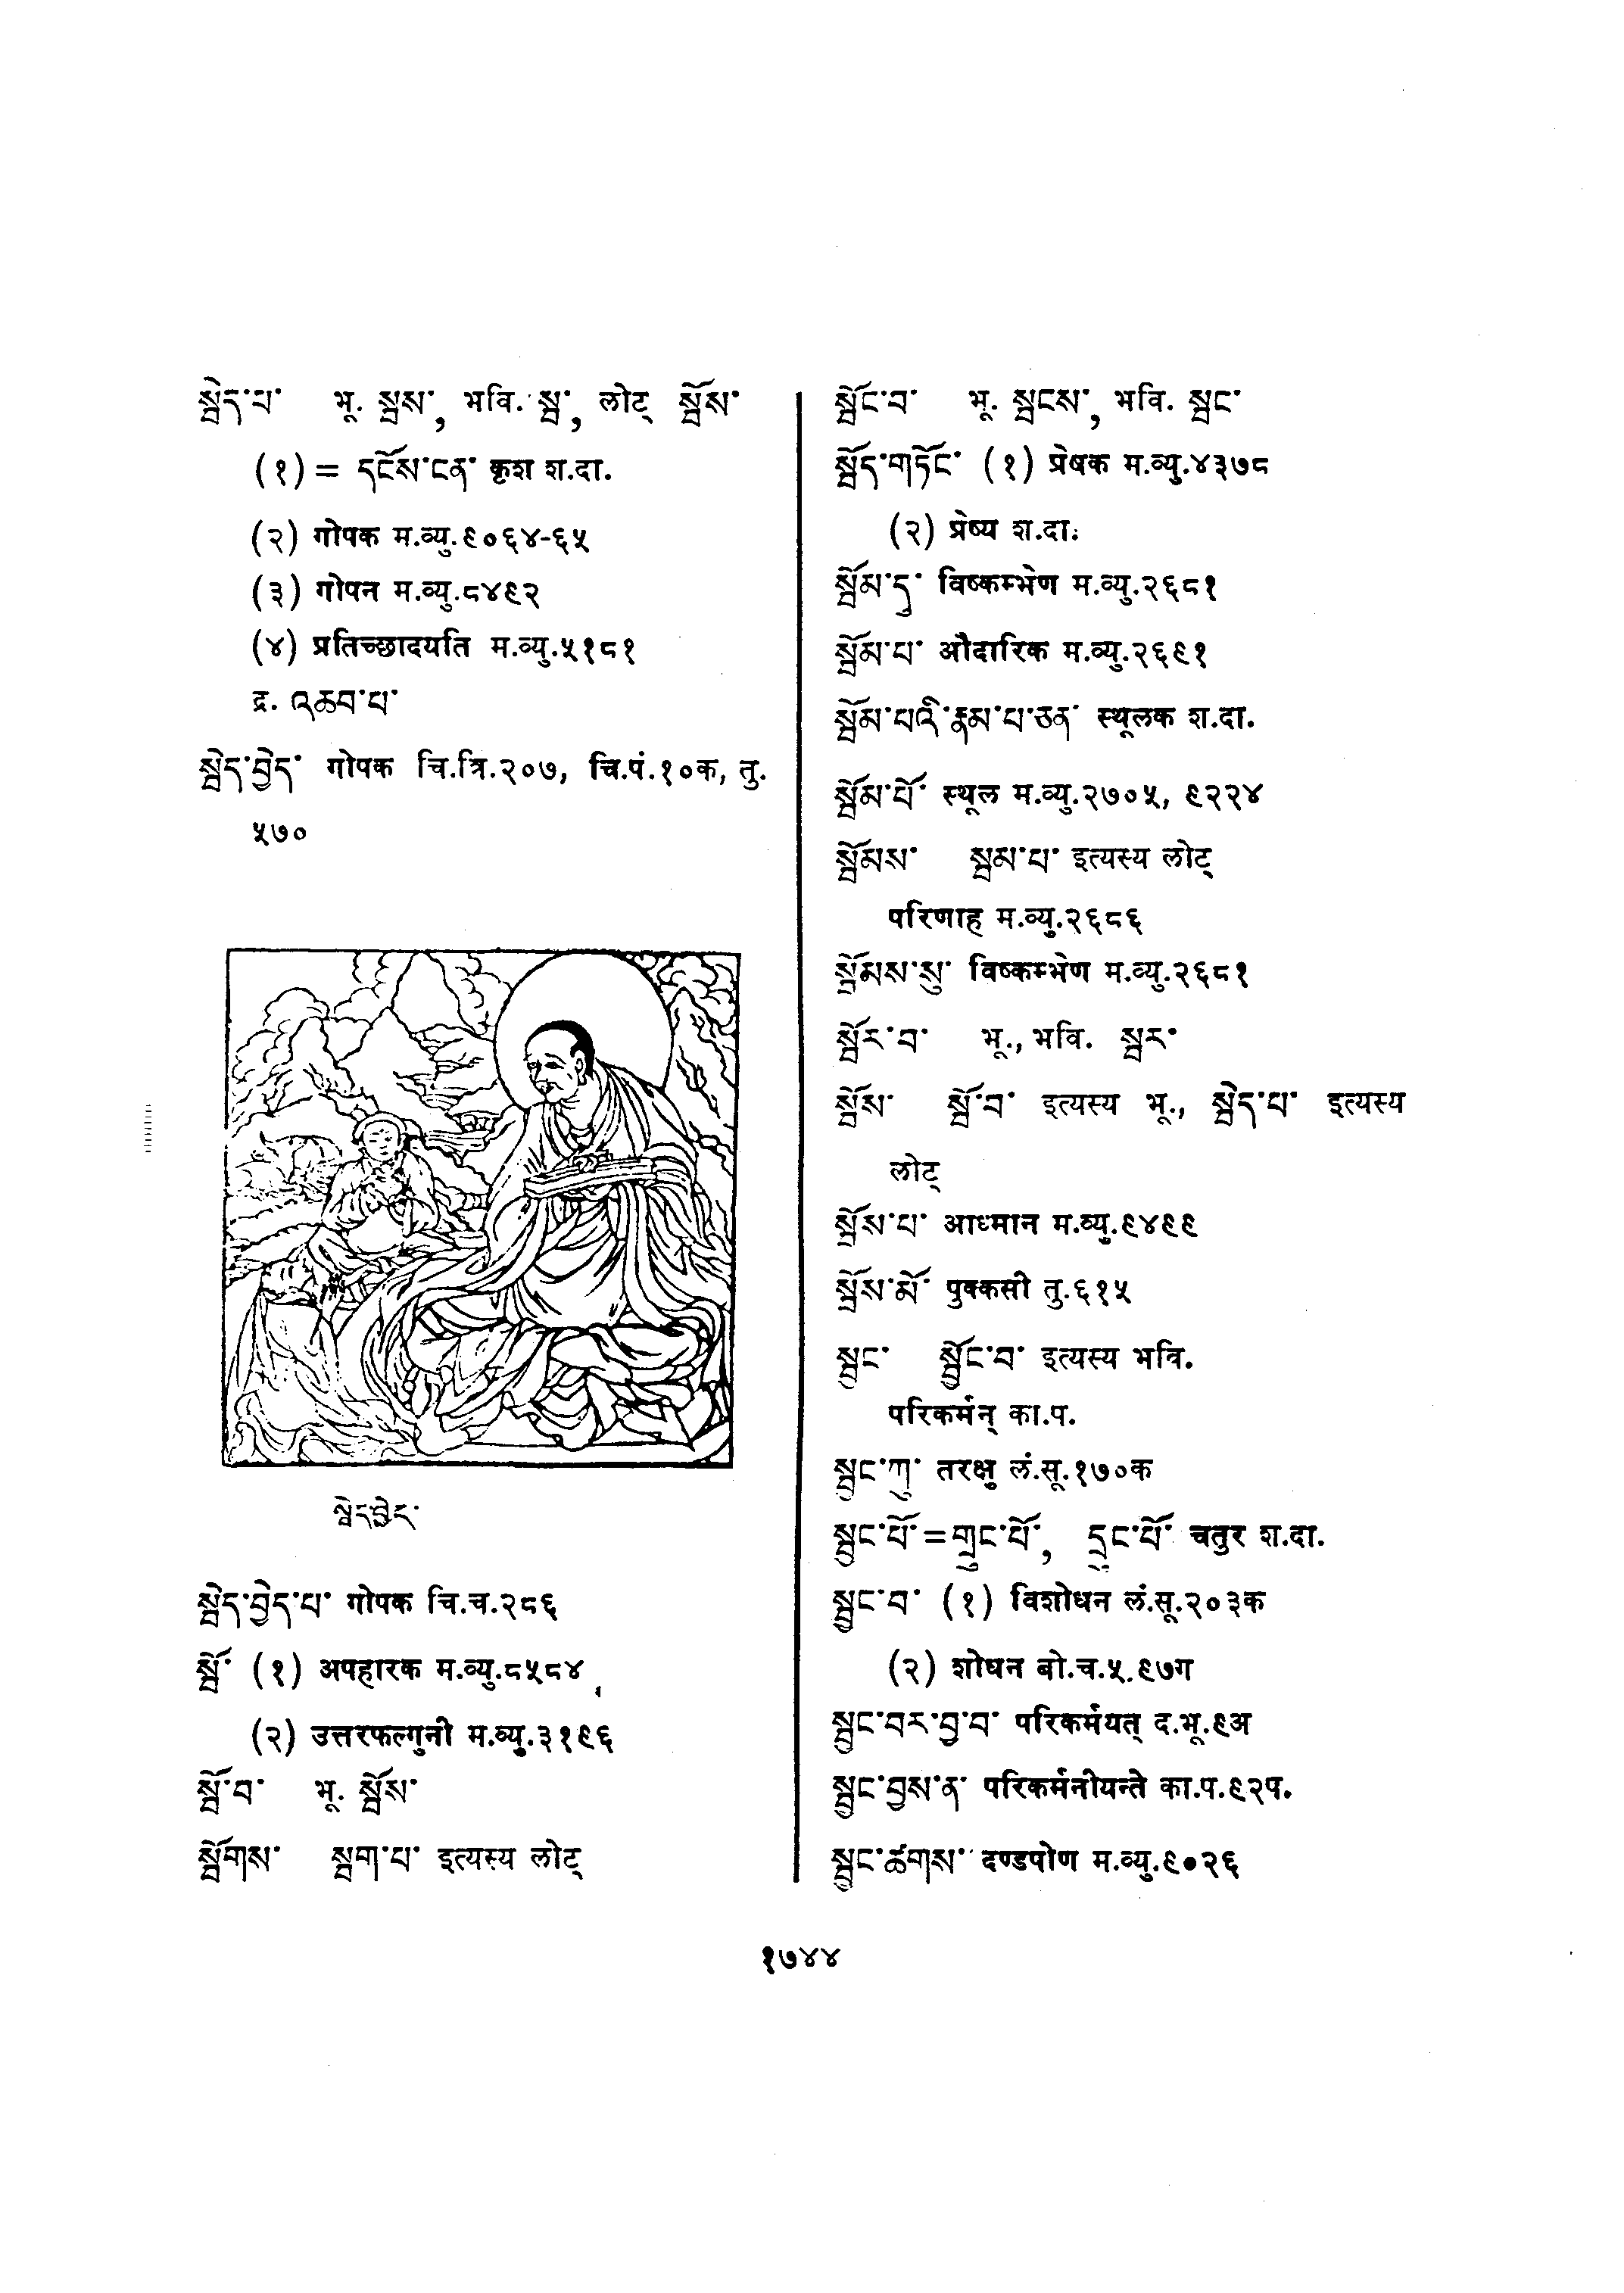 སྦེད་པ་ भू. སྦས་, भवि. སྦ་, लोट् སྦོས་
(१) = དངོས་ངན་ कृश श.दा.
(२) गोपक म.व्यु.९०६४-६५
(३) गोपन म.व्यु.८४९२
(४) प्रतिच्छादयति म.व्यु.५१८१
द्र. འཆབ་པ་
སྦེད་བྱེད་ गोपक चि.त्रि.२०७, चि.पं.१०क, तु.
५७०
སྦེད་བྱེད་
སྦེད་བྱེད་པ་ गोपक चि.च.२८६
སྦོ་ (१) अपहारक म.व्यु.८५८४
(२) उत्तरफल्गुनी म.व्यु.३१९६
སྦོ་བ་ भू. སྦོས་
སྦོགས་ སྦག་པ་ इत्यस्य लोट्
སྦོང་བ་ भू. སྦངས་, भवि. སྦང་
སྦོད་གཏོང་ (१) प्रेषक म.व्यु.४३७८
(२) प्रेष्य श.दा.
སྦོམ་དུ་ विष्कम्भेण म.व्यु.२६८१
སྦོམ་པ་ औदारिक म.व्यु.२६९१
སྦོམ་པའི་རྣམ་པ་ཅན་ स्थूलक श.दा.
སྦོམ་པོ་ स्थूल म.व्यु.२७०५, ९२२४
སྦོམས་ སྦམ་པ་ इत्यस्य लोट्
परिणाह म.व्यु.२६८६
སྦོམས་སུ་ विष्कम्भेण म.व्यु.२६८१
སྦོར་བ་ भू., भवि. སྦར་
སྦོས་ སྦོ་བ་ इत्यस्य भू., སྦེད་པ་ इत्यस्य
लोट्
སྦོས་པ་ आध्मान म.व्यु.९४९९
སྦོས་མོ་ पुक्कसी तु.६१५
སྦྱང་ སྦྱོང་བ་ इत्यस्य भवि.
परिकर्मन् का.प.
སྦྱང་ཀུ་ तरक्षु लं.सू.१७०क
སྦྱང་པོ་=གྲུང་པོ་, དྲང་པོ་ चतुर श.दा.
སྦྱང་བ་ (१) विशोधन लं.सू.२०३क
(२) शोधन बो.च.५.९७ग
སྦྱང་བར་བྱ་བ་ परिकर्मयत् द.भू.९अ
སྦྱང་བྱས་ན་ परिकर्मनीयन्ते का.प.९२प.
སྦྱང་ཚགས་ दण्डपोण म.व्यु.९०२६
१७४४